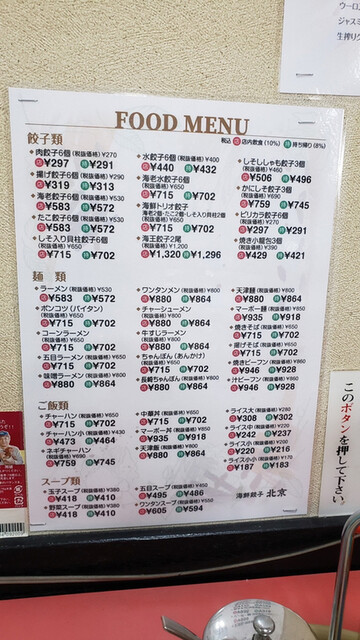 ウーロン
ジャスミ
生搾り
FOOD MENU
税込 店 店内飲食(10%) 持 持ち帰り(8%)
餃子類
肉餃子6個(税抜価格)¥270
店¥297 持¥291
揚げ餃子6個(税抜価格)¥290
店¥319 持¥313
海老餃子6個(税抜価格)¥530
店¥583 持¥572
たこ餃子6個(税抜価格)¥530
店¥583 持¥572
しそ入り貝柱餃子6個
(税抜価格)¥650
店¥715 持¥702
水餃子6個(税抜価格)¥400
店¥440 持¥432
海老水餃子6個
(税抜価格)¥650
店¥715 持¥702
海鮮トリオ餃子
海老2個・たこ2個・しそ入り貝柱2個
(税抜価格)¥650
店¥715 持¥702
海王餃子2尾
(税抜価格)¥1,200
店¥1,320 持¥1,296
しそししゃも餃子3個
(税抜価格)¥460
店¥506 持¥496
かにしそ餃子3個
(税抜価格)¥690
店¥759 持¥745
ピリカラ餃子6個
(税抜価格)¥270
店¥297 持¥291
焼き小籠包3個
(税抜価格)¥390
店¥429 持¥421
麺類
ラーメン(税抜価格)¥530
店¥583 持¥572
ポンコツ(パイタン)
(税抜価格)¥650
店¥715 持¥702
コーンラーメン
(税抜価格)¥650
店¥715 持¥702
五目ラーメン(税抜価格)¥650
店¥715 持¥702
味噌ラーメン(税抜価格)¥800
店¥880 持¥864
ワンタンメン(税抜価格)¥800
店¥880 持¥864
チャーシューメン
(税抜価格)¥800
店¥880 持¥864
牛すじラーメン
(税抜価格)¥800
店¥880 持¥864
ちゃんぽん(あんかけ)
(税抜価格)¥650
店¥715 持¥702
長崎ちゃんぽん(税抜価格)¥800
店¥880 持¥864
天津麺(税抜価格)¥800
店¥880 持¥864
マーボー麺(税抜価格)¥850
店¥935 持¥918
焼きそば(税抜価格)¥650
店¥715 持¥702
揚げそば(税抜価格)¥650
店¥715 持¥702
焼きビーフン(税抜価格)¥860
店¥946 持¥928
汁ビーフン(税抜価格)¥860
店¥946 持¥928
ご飯類
チャーハン(税抜価格)¥650
店¥715 持¥702
チャーハン小(税抜価格)¥430
店¥473 持¥464
ネギチャーハン
(税抜価格)¥690
店¥759 持¥745
中華丼(税抜価格)¥650
店¥715 持¥702
マーボー丼(税抜価格)¥850
店¥935 持¥918
天津飯(税抜価格)¥800
店¥880 持¥864
ライス大(税抜価格)¥280
店¥308 持¥302
ライス中(税抜価格)¥220
店¥242 持¥237
ライス小(税抜価格)¥200
店¥220 持¥216
ライス小小(税抜価格)¥170
店¥187 持¥183
スープ類
玉子スープ(税抜価格)¥380
店¥418 持¥410
野菜スープ(税抜価格)¥380
店¥418 持¥410
五目スープ(税抜価格)¥450
店¥495 持¥486
ワンタンスープ(税抜価格)¥550
店¥605 持¥594
海鮮餃子 北京
このボタンを押して下さい。